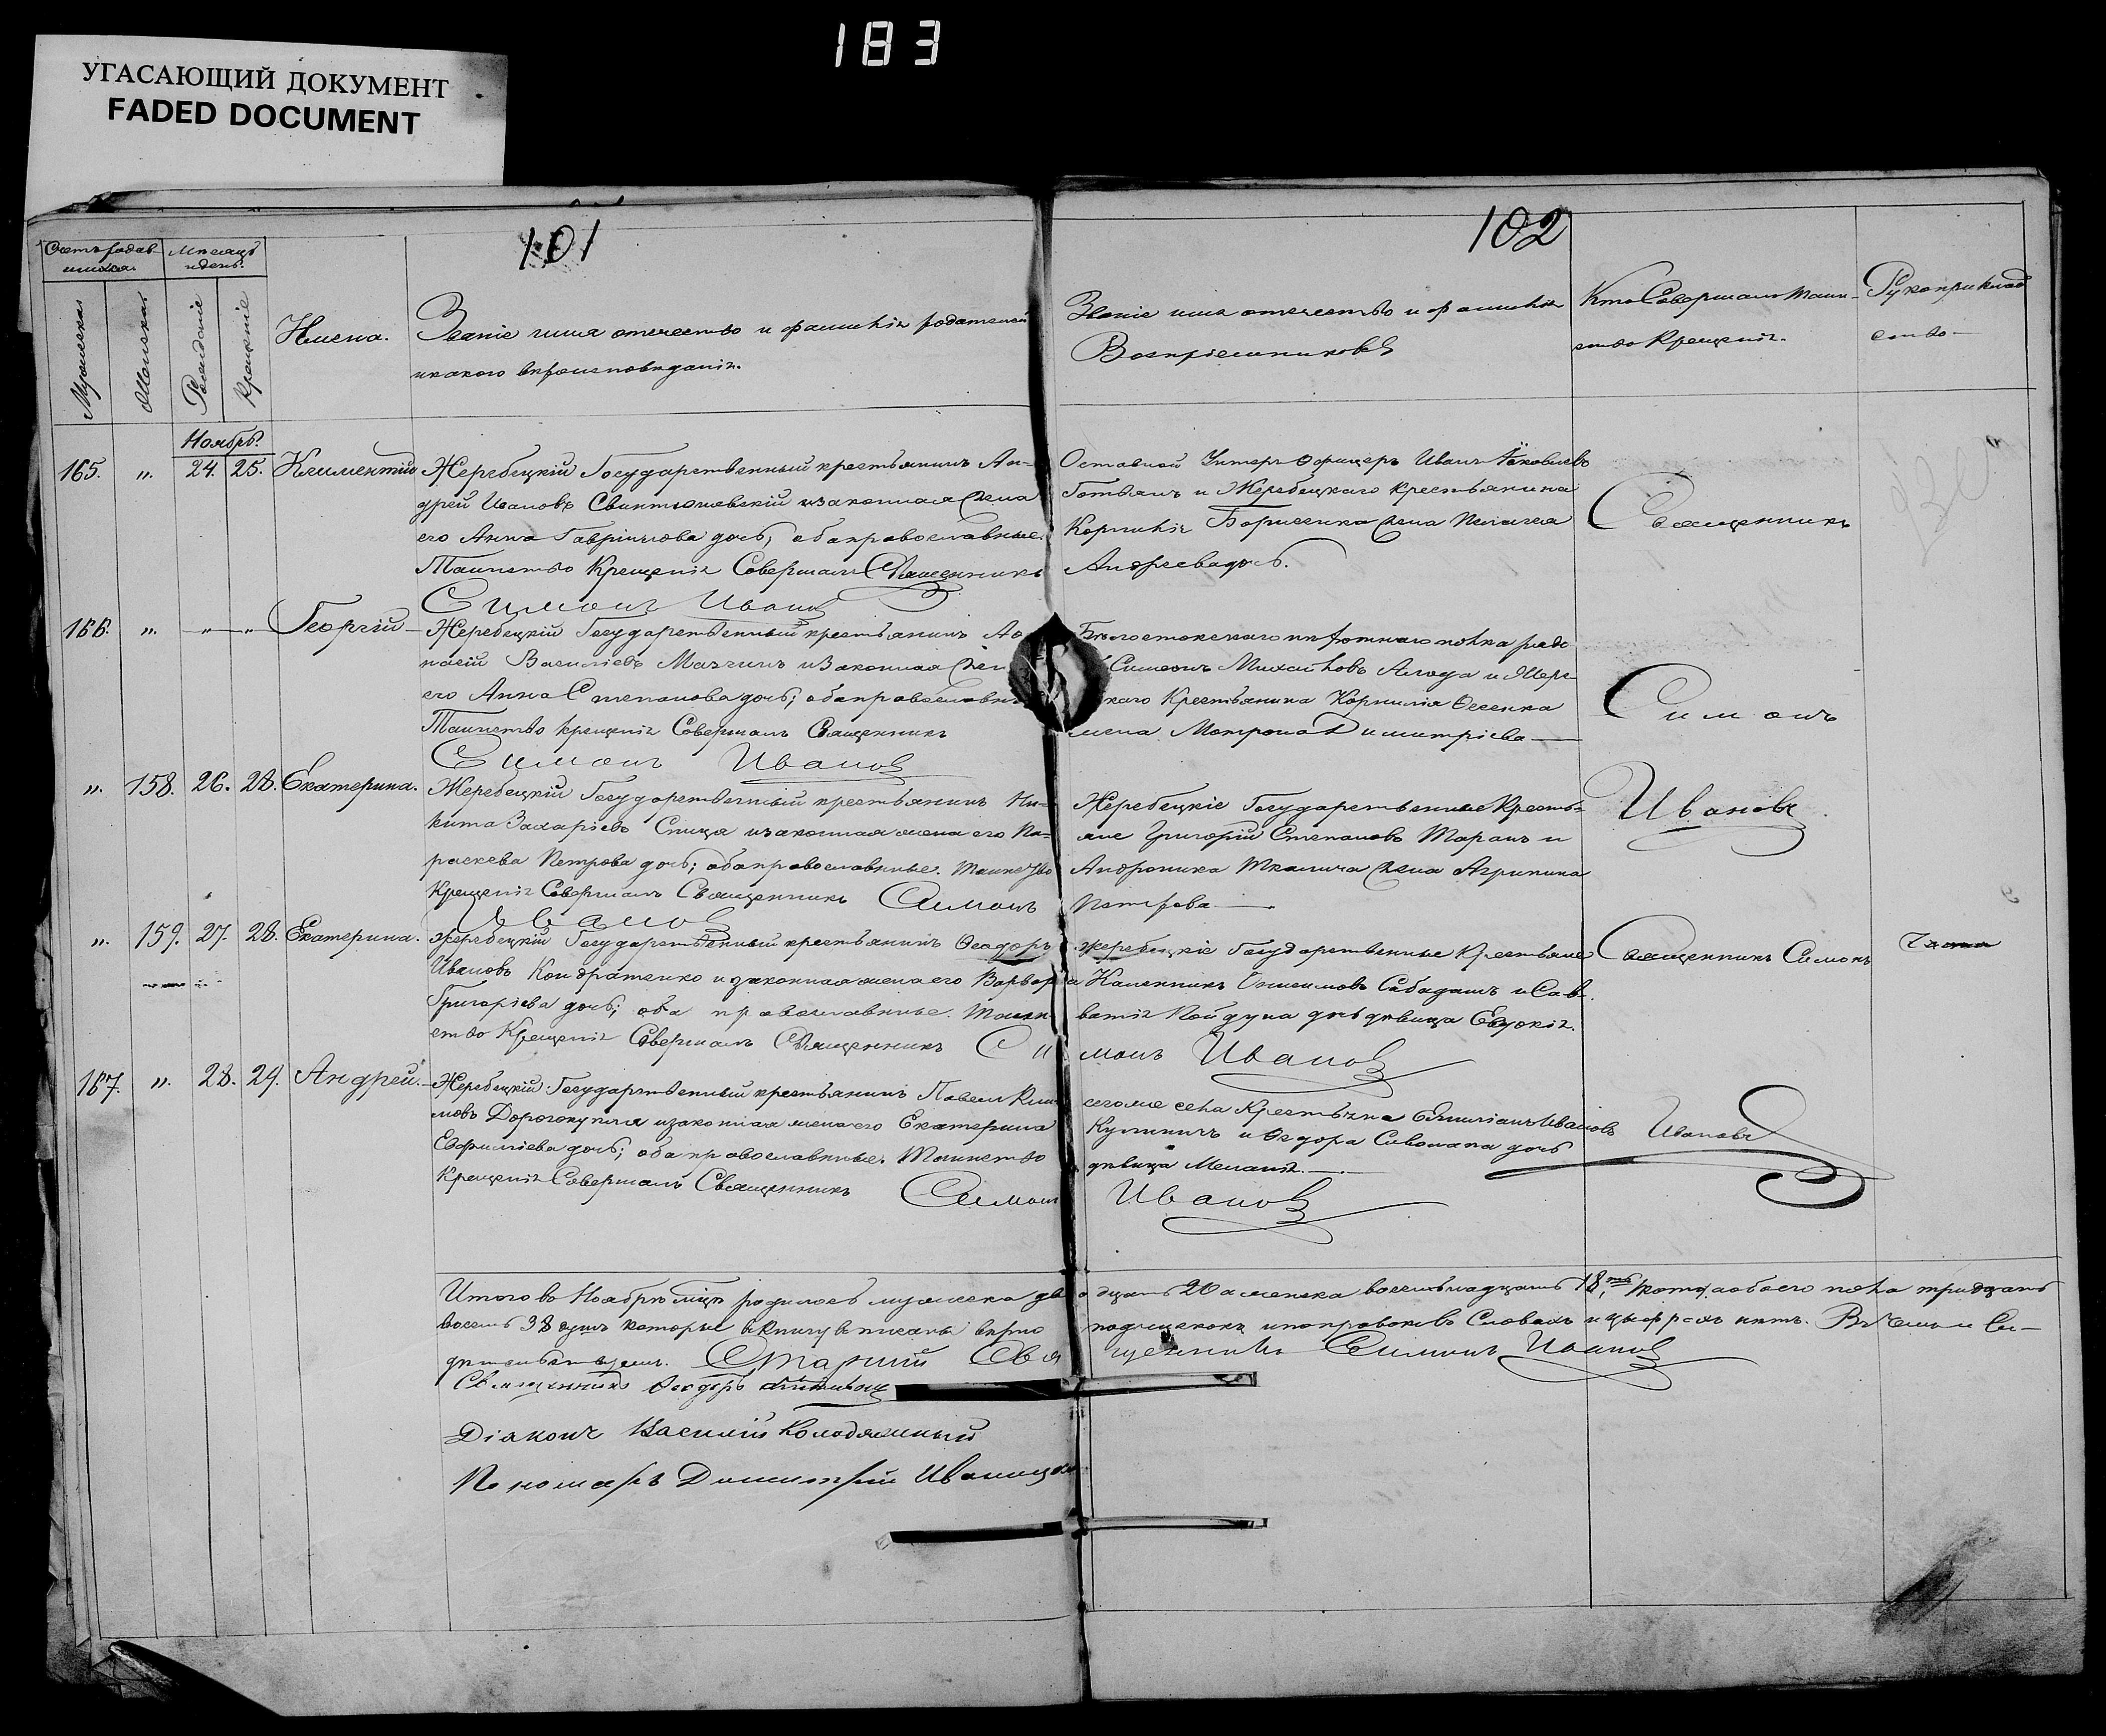 183
УГАСАЮЩИЙ ДОКУМЕНТ
FADED DOCUMENT
101
102
Счетъ родив-
шихся.
Мѣсяцъ
и день.
Мужеска
Женска
Рожденіе
Крещеніе
Имена.
Званіе имя отечество и фамилія родителей
и какого вѣроисповѣданія.
Званіе имя отечество и фамилія
Воспріемниковъ
Кто Совершалъ Таин-
ство Крещенія.
Рукоприклад
ство
Ноябрь.
165. „. 24. 25. Климентій
Жеребецкій Государственный крестьянинъ Ан-
дрей Ивановъ и законная жена
его Анна Гавріилова дочь, оба православные.
Таинство Крещенія Совершалъ Священникъ
Симонъ Ивановъ
Отставной Унтеръ Офицеръ Иванъ Яковлевъ
и Жеребецкаго крестьянина
Корнилія Борисенка жена Пелагея
Андреева дочь.
Священникъ
166. „. „ „ Георгій
Жеребецкій Государственный крестьянинъ
Василіевъ и законная
его Анна Степанова дочь; оба православные
Таинство крещенія Совершалъ Священникъ
Симонъ Ивановъ
пѣхотнаго полка
Симеонъ Михайловъ и Жере-
каго Крестьянина Корнилія
жена Матрона Димитріева
Симонъ
„. 158. 26. 28. Екатерина.
Жеребецкій Государственный крестьянинъ Ни-
кита Захаріевъ Спица и законная жена его Па-
раскева Петрова дочь; оба православные. Таинство
Крещенія Совершалъ Священникъ Симонъ
Ивановъ
Жеребецкіе Государственные Кресть-
яне Григорій Степановъ Таранъ и
Андроника Ткалича жена Агрипина
Петрова
Ивановъ
„. 159. 27. 28. Екатерина.
Жеребецкій Государственный крестьянинъ Ѳеодоръ
Ивановъ Кондратенко и законная жена его Варвара
Григоріева дочь; оба православные. Таин
ство Крещенія Совершалъ Священникъ Си
монъ Ивановъ
Жеребецкіе Государственные Крестьяне
Калинникъ Онисимовъ Сабадашъ и Сав-
ватія Койдуна дочь дѣвица Евдокія.
Священникъ Симонъ
167. „. 28. 29. Андрей.
Жеребецкій Государственный крестьянинъ Павелъ Кли
мовъ и законная жена его Екатерина
Евфиміева дочь; оба православные. Таинство
Крещенія Совершалъ Священникъ Симонъ
Ивановъ
сего же села Крестьяне Емиліанъ Ивановъ
и Ѳедора дочь
дѣвица Меланія.
Ивановъ
Итого въ Ноябрѣ мцѣ родилось мужеска двадцать 20 а женска восемьнадцать 18, обоего пола тридцать
восемь 38 душъ которые в Книгу вписаны вѣрно подчистокъ и поправокъ въ Словахъ и цыфрахъ нетъ. Въ чемъ и Сви-
дѣтельствуемъ. Старшій Священникъ Симонъ Ивановъ
Священникъ Ѳеодоръ
Діаконъ Василій Колодяжный
Пономарь Димитрій Иваницкій